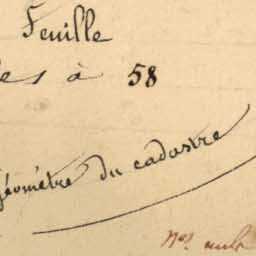 Feuille
es à 58
géomètre du cadastre